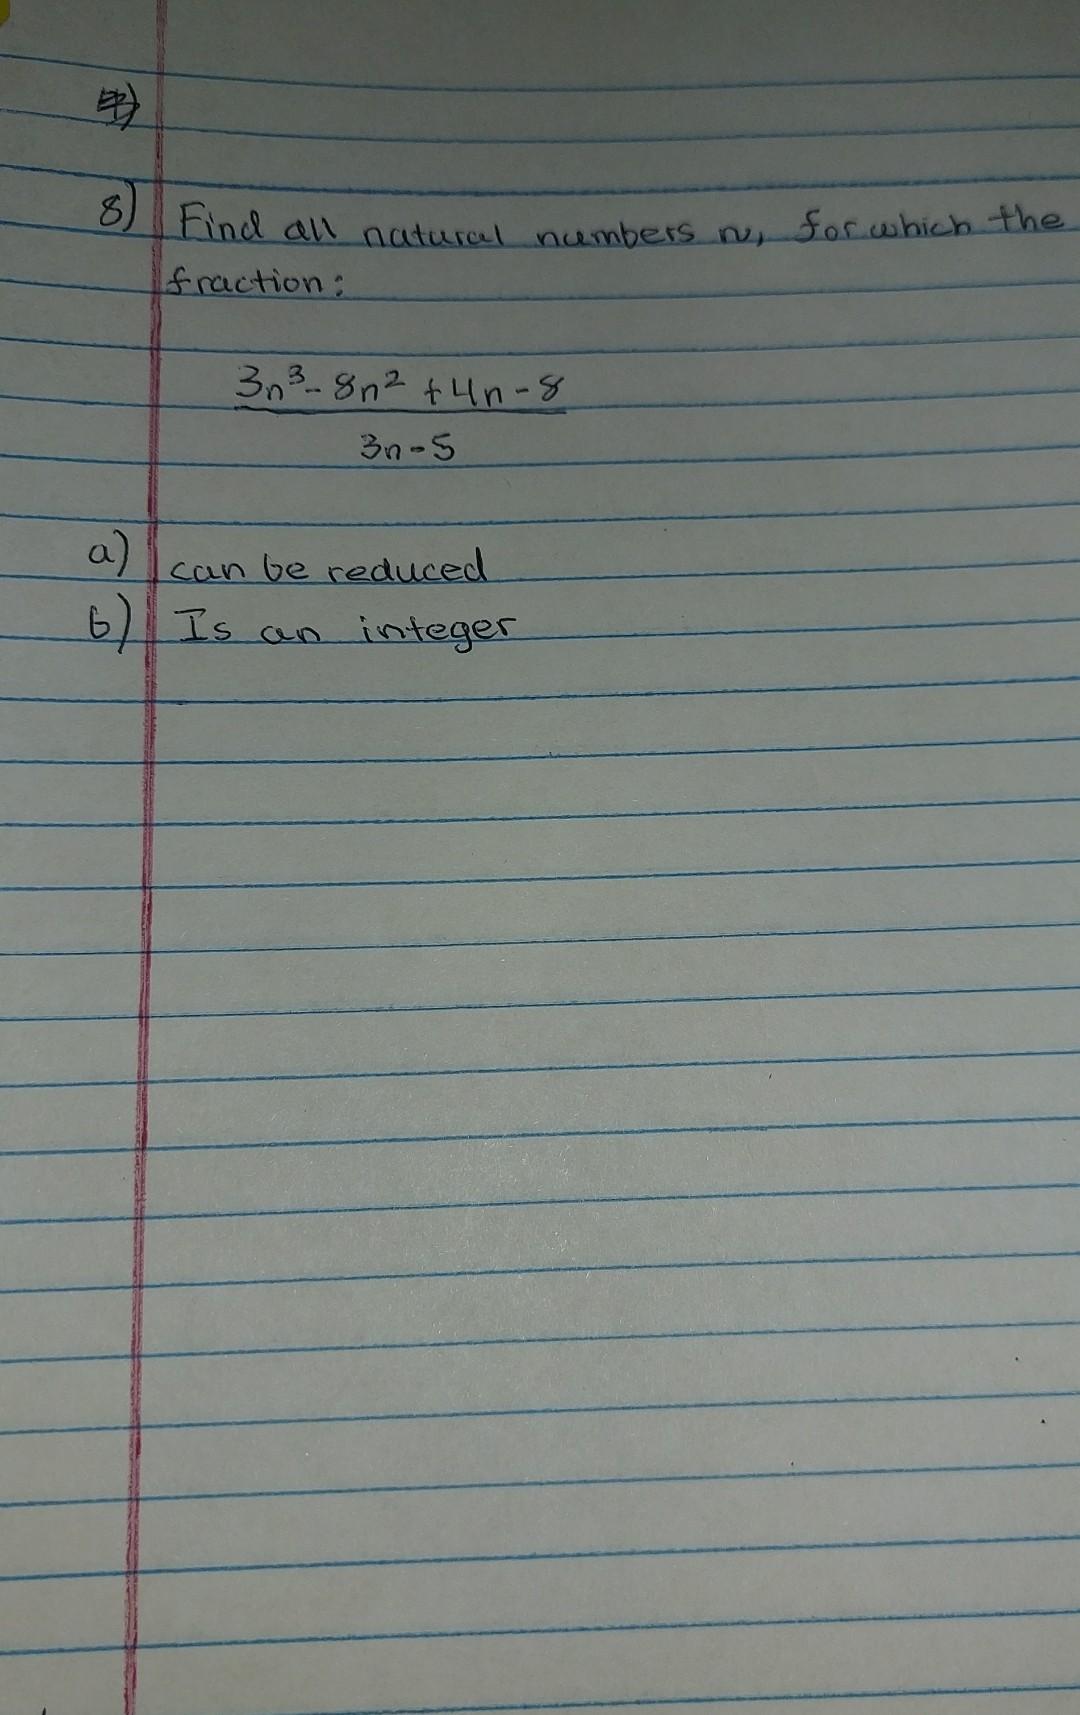 8) Find all natural numbers n, for which the
fraction:
3n³-8n²+4n-8
3n-5
a) can be reduced
b) Is an integer